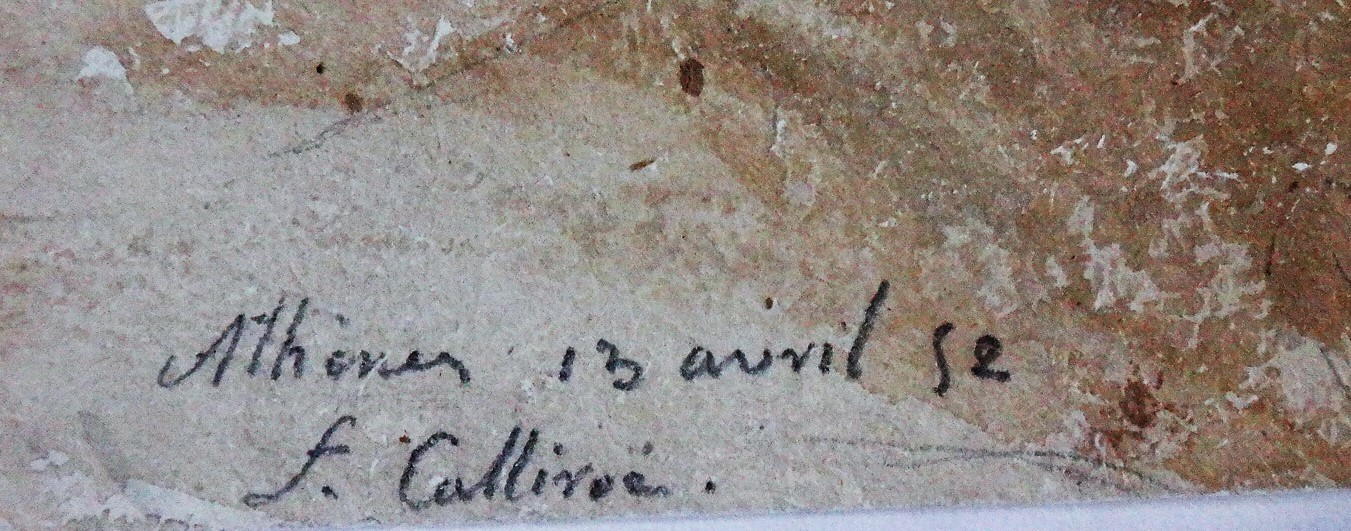 Athènes 13 avril 52
f. Calliroë.